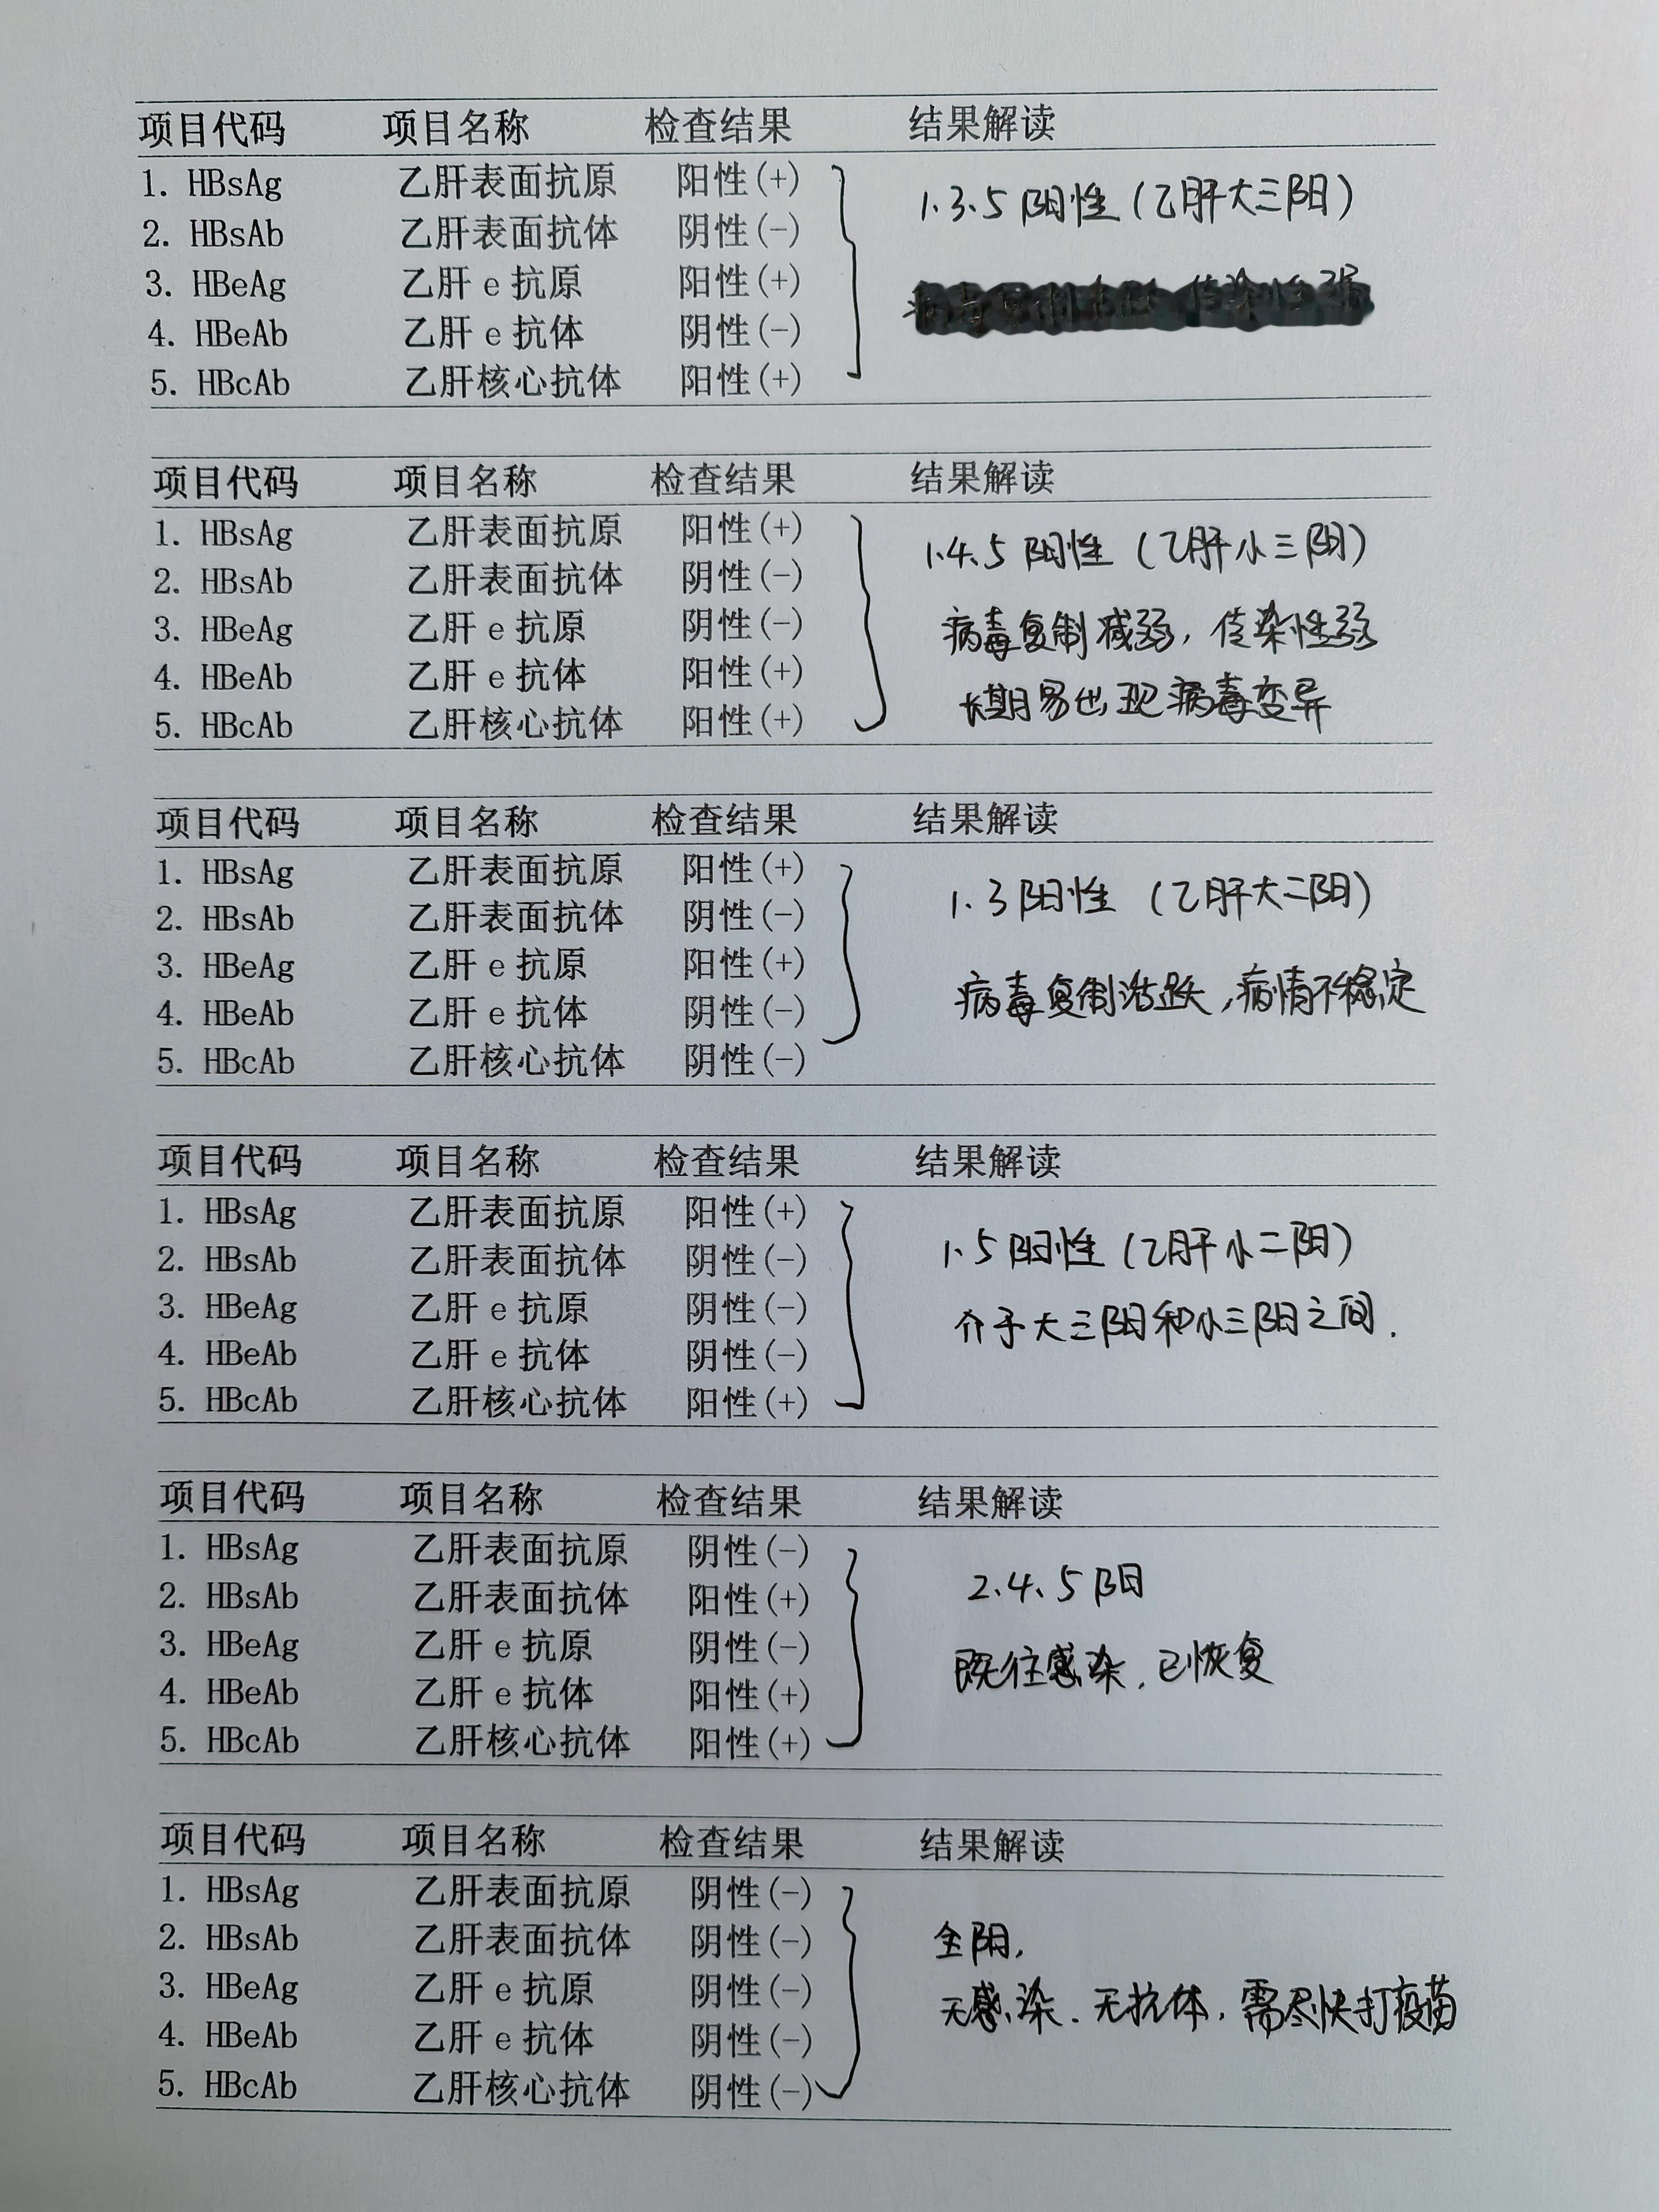 项目代码 项目名称 检查结果 结果解读
1. HBsAg 乙肝表面抗原 阳性(+) 1.3.5 阳性 (乙肝大三阳)
2. HBsAb 乙肝表面抗体 阴性(-)
3. HBeAg 乙肝 e 抗原 阳性(+)
4. HBeAb 乙肝 e 抗体 阴性(-)
5. HBcAb 乙肝核心抗体 阳性(+)
项目代码 项目名称 检查结果 结果解读
1. HBsAg 乙肝表面抗原 阳性(+) 1.4.5 阳性 (乙肝小三阳)
2. HBsAb 乙肝表面抗体 阴性(-)
3. HBeAg 乙肝 e 抗原 阴性(-) 病毒复制减弱, 传染性弱
4. HBeAb 乙肝 e 抗体 阳性(+) 长期易出现病毒变异
5. HBcAb 乙肝核心抗体 阳性(+)
项目代码 项目名称 检查结果 结果解读
1. HBsAg 乙肝表面抗原 阳性(+) 1.3 阳性 (乙肝大二阳)
2. HBsAb 乙肝表面抗体 阴性(-)
3. HBeAg 乙肝 e 抗原 阳性(+) 病毒复制活跃,病情不稳定
4. HBeAb 乙肝 e 抗体 阴性(-)
5. HBcAb 乙肝核心抗体 阴性(-)
项目代码 项目名称 检查结果 结果解读
1. HBsAg 乙肝表面抗原 阳性(+) 1.5 阳性 (乙肝小二阳)
2. HBsAb 乙肝表面抗体 阴性(-)
3. HBeAg 乙肝 e 抗原 阴性(-) 介于大三阳和小三阳之间.
4. HBeAb 乙肝 e 抗体 阴性(-)
5. HBcAb 乙肝核心抗体 阳性(+)
项目代码 项目名称 检查结果 结果解读
1. HBsAg 乙肝表面抗原 阴性(-) 2.4.5 阳
2. HBsAb 乙肝表面抗体 阳性(+)
3. HBeAg 乙肝 e 抗原 阴性(-) 既往感染, 已恢复
4. HBeAb 乙肝 e 抗体 阳性(+)
5. HBcAb 乙肝核心抗体 阳性(+)
项目代码 项目名称 检查结果 结果解读
1. HBsAg 乙肝表面抗原 阴性(-)
2. HBsAb 乙肝表面抗体 阴性(-) 全阴,
3. HBeAg 乙肝 e 抗原 阴性(-) 无感染. 无抗体, 需尽快打疫苗
4. HBeAb 乙肝 e 抗体 阴性(-)
5. HBcAb 乙肝核心抗体 阴性(-)